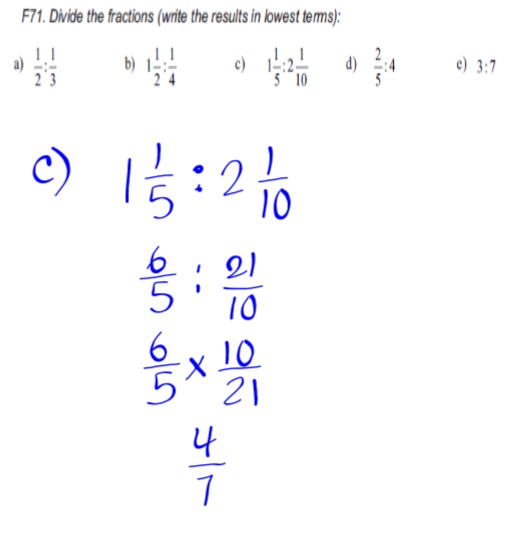 F71. Divide the fractions (write the results in lowest terms):
a) 1/2:1/3 b) 1 1/2:1/4 c) 1 1/5:2 1/10 d) 2/5:4 e) 3:7
c) 1 1/5 : 2 1/10
6/5 : 21/10
6/5 × 10/21
4/7